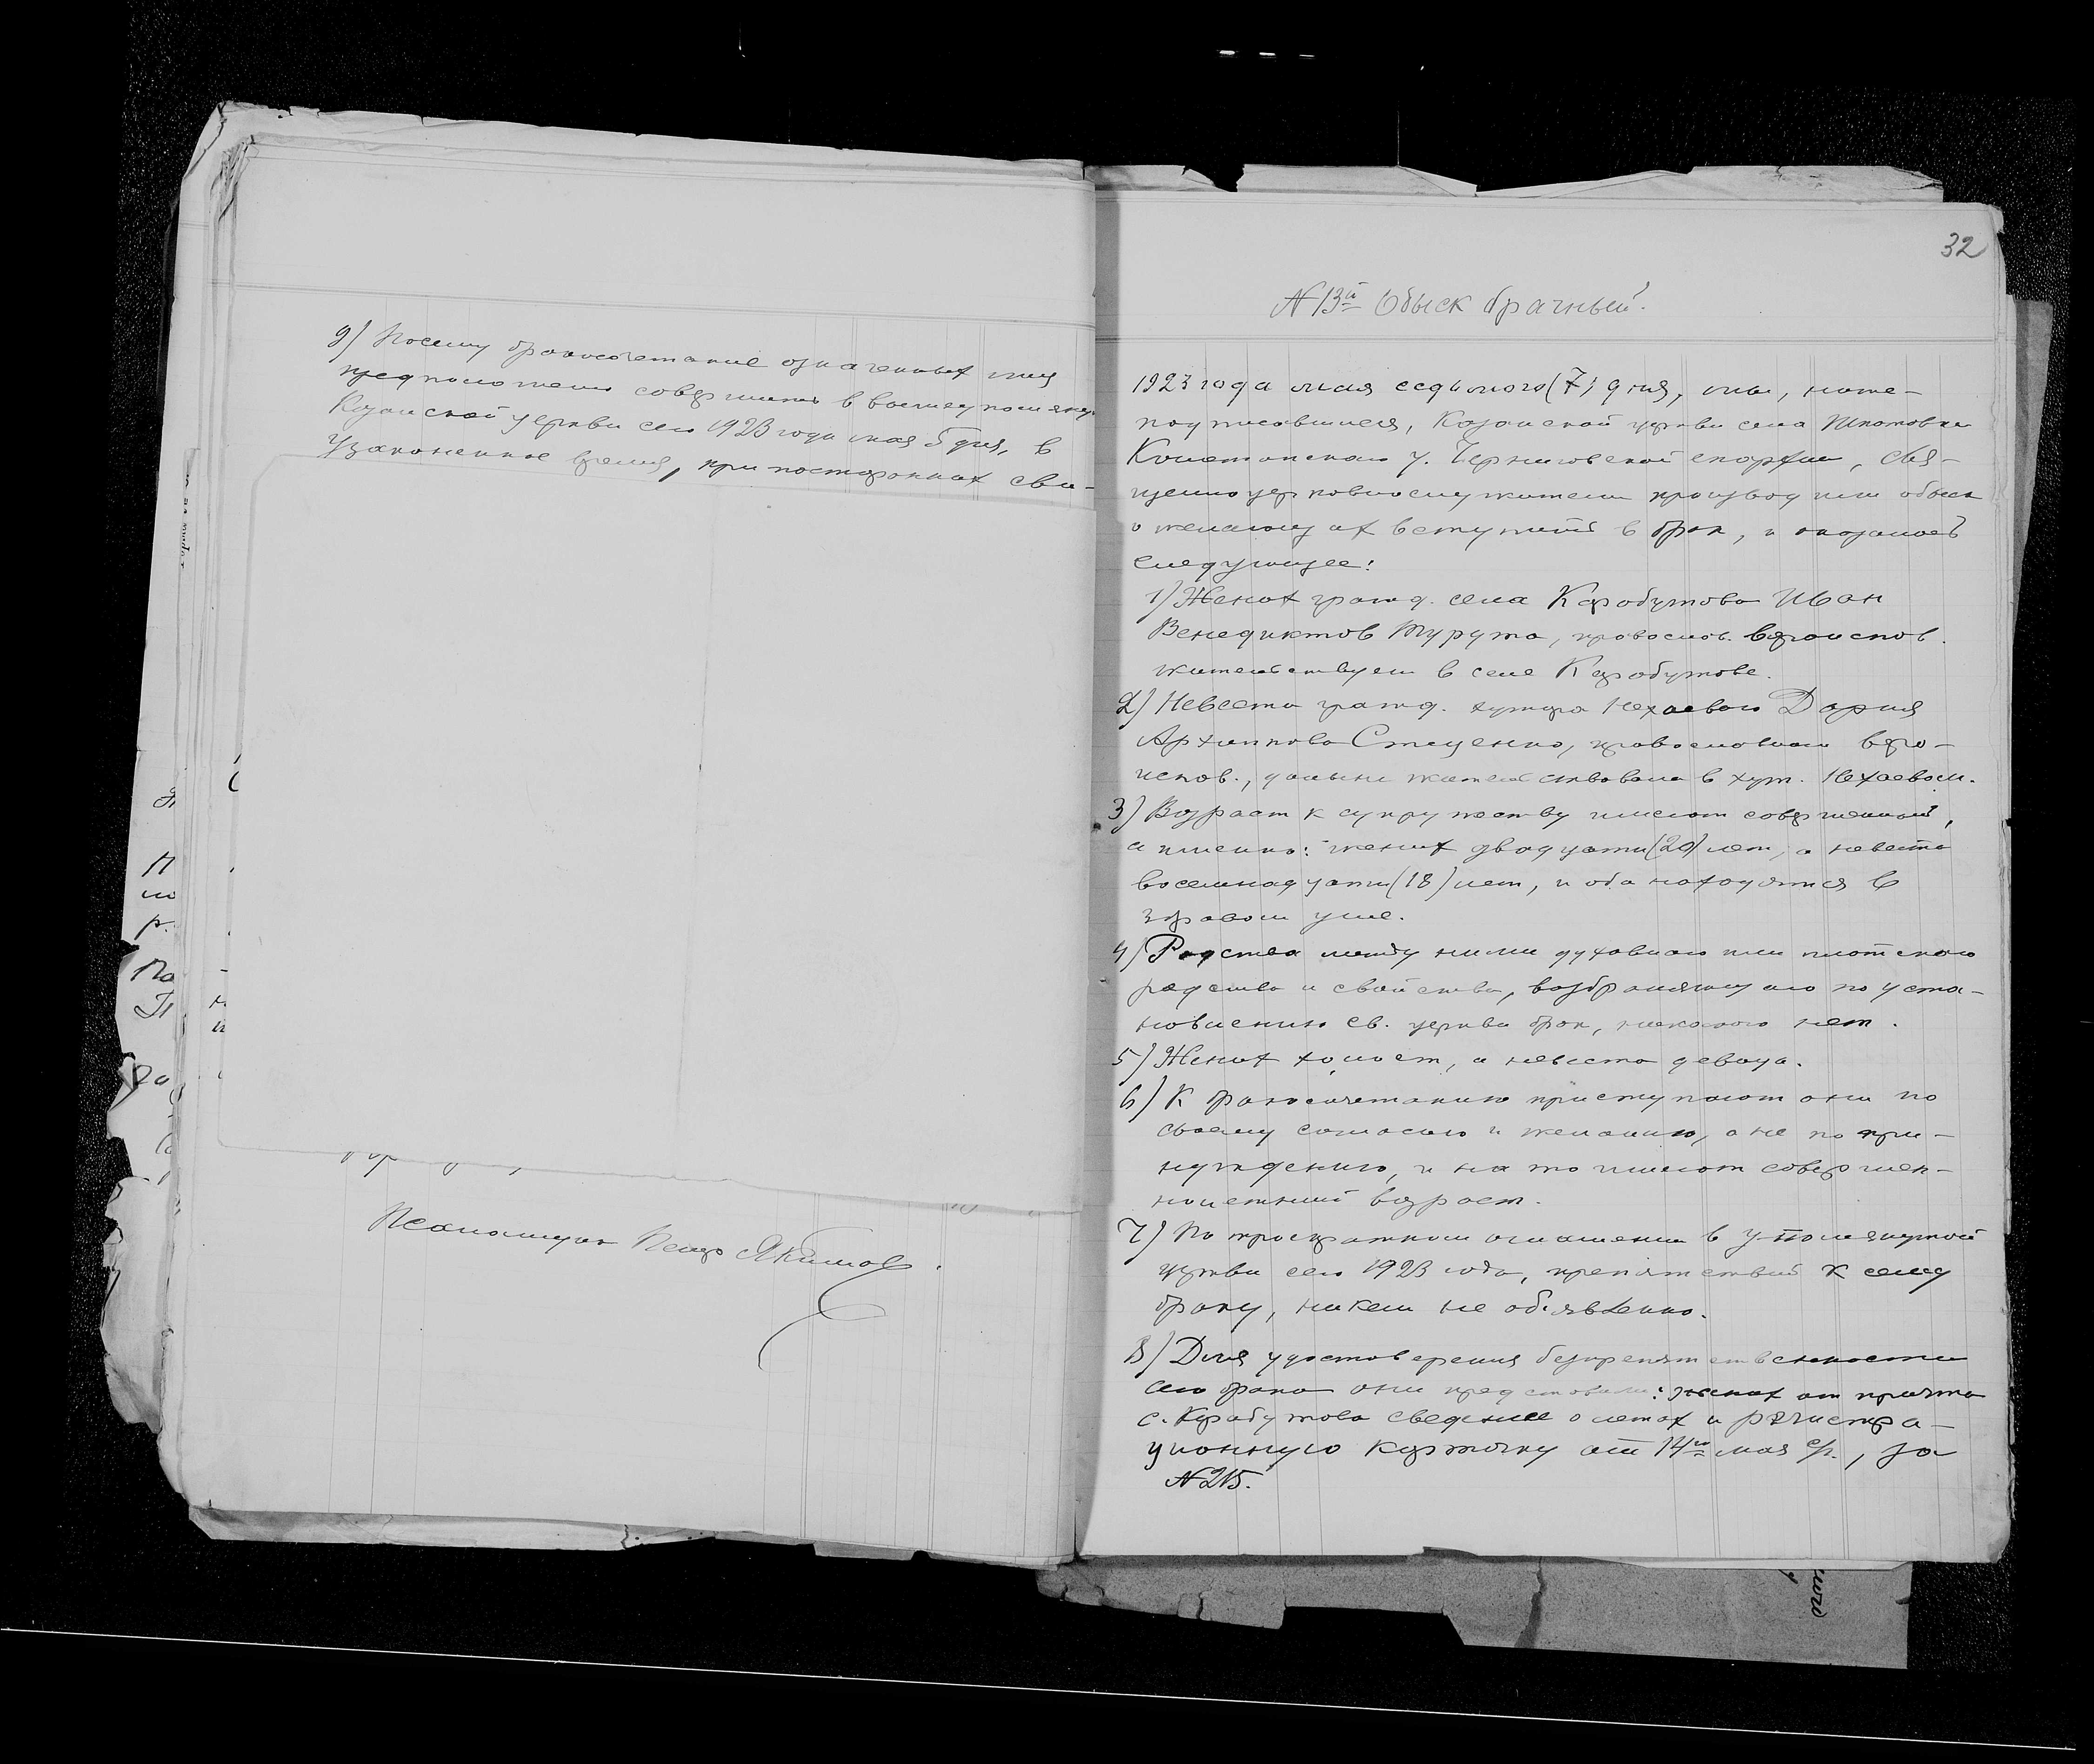 9) Посему бракосочетание означенных лиц
предположено совершить в вышеупомянут
Казанской церкви сего 1923 года мая 5 дня, в
узаконенное время, при посторонних сви-
Псаломщик Петр Якимов.
32
N 13й Обыск брачный.
1923 года мая седьмого (7) дня, мы, ниже-
подписавшиеся, Казанской церкви села Шпотовки
Конотопского у. Черниговской епархии, свя-
щенноцерковнослужители производили обыск
о желающих вступить в брак, и оказалось
следующее:
1) Жених гражд. села Карабутова Иван
Венедиктов Турута, православ. вероиспов.
жительствует в селе Карабутове.
2) Невеста гражд. хутора Нехаевого Дария
Архиппова Стеценко, православного веро-
испов., доныне жительствовала в хут. Нехаевом.
3) Возраст к супружеству имеют совершенный,
а именно: жених двадцати (20) лет, а невеста
восемнадцати (18) лет, и оба находятся в
здравом уме.
4) Родства между ними духовного или плотского
родства и свойства, возбраняющего по уста-
новлению св. церкви брак, никакого нет.
5) Жених холост, а невеста девица.
6) К бракосочетанию приступают они по
своему согласию и желанию, а не по при-
нуждению, и на то имеют совершен-
нолетний возраст.
7) По троекратном оглашении в упомянутой
церкви сего 1923 года, препятствий к сему
браку, никем не объявленно.
8) Для удостоверения безпрепятственности
сего брака они представили: жених от причта
с. Карабутова сведение о летах и регистра-
ционную карточку от 14го мая с/г., за
N 215.